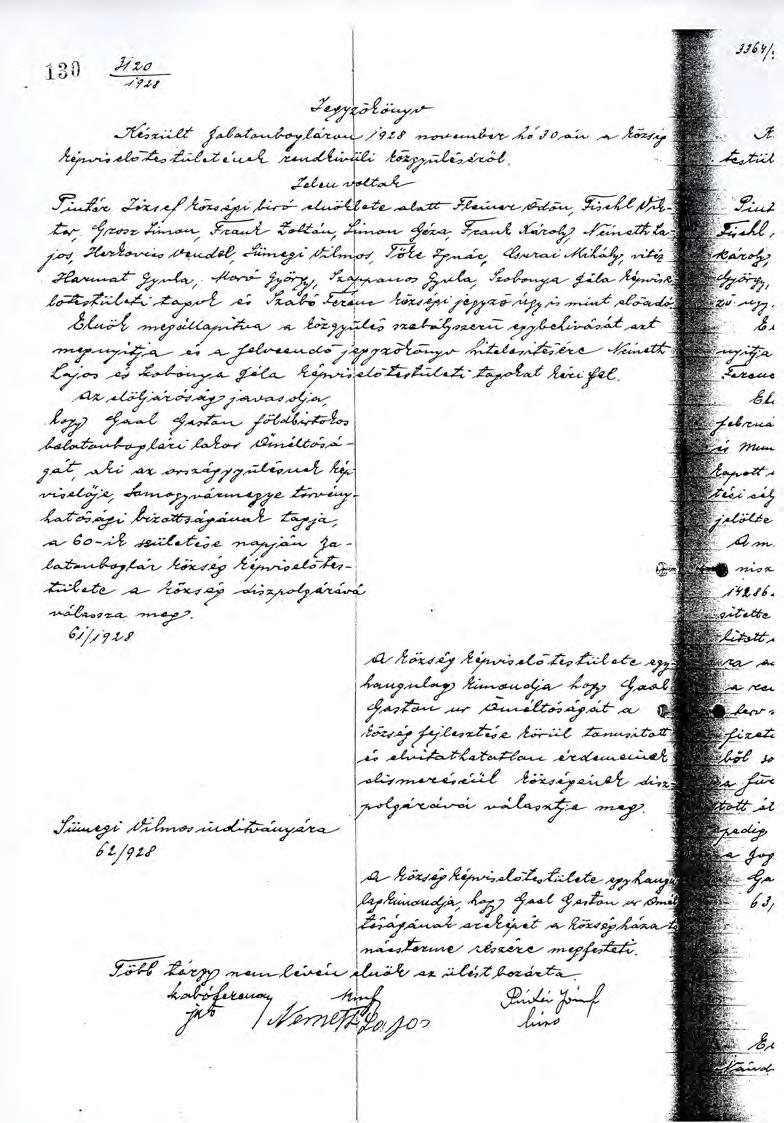 130 3120/1928
Jegyzőkönyv
Készült Balatonbogláron 1928 november hó 30-án a község
képviselőtestületének rendkívüli közgyüléséről.
Jelen voltak
Pintér József községi biró elnöklete alatt Fleiner Ödön, Fischl Vik-
tor, Grosz Simon, Frank Zoltán, Simon Géza, Frank Károly, Németh La-
jos, Herkovics Vendel, Sümegi Vilmos, Tőke Ignác, Csurai Mihály, vitéz
Harmat Gyula, Maró György, Szappanos Gyula, Szobonya Géla képvise
lőtestületi tagok és Szabó Ferenc községi jegyző ugyis mint előadó
Elnök megállapitva a közgyülés szabályszerü egybehivását azt
megnyitja és a felveendő jegyzőkönyv hitelesitésére Németh
Lajos és Zobonya Géla képviselőtestületi tagokat kéri fel.
Az elöljáróság javasolja,
hogy Gaal Gaston földbirtokos
balatonboglári lakos Őméltósá-
gát, aki az országgyülésnek kép-
viselője, Somogyvármegye törvény-
hatósági bizottságának tagja,
a 60-ik születése napján Ba-
latonboglár község képviselőtes-
tülete a község diszpolgárává
válassza meg.
61/1928
A község képviselőtestülete egy-
hangulag kimondja hogy Gaal
Gaston ur Őméltóságát a
község fejlesztése körül tanusitott
és elvitathatatlan érdemeinek
elismeréséül községének disz-
polgárává választja meg.
Sümegi Vilmos inditványára
62/928
A község képviselőtestülete egyhangu
lag kimondja, hogy Gaal Gaston ur Őmél
tóságának arcképét a községháza ta
nácsterme részére megfesteti.
Több tárgy nem lévén elnök az ülést bezárta.
Szabó Ferenc kmf Pintér József
jző Németh Lajos biró
3364/
testül
Pint
Fischl,
Károly,
György,
ző ug
El
nyitja
Ferenc
El
februá
és Mun
kapott
tési
jelölte
A m
nisz
14286.
sitette
litott
ra
a
terv-
fizeti
ből
a
tott ál
pedig
a jog
Ga
63,